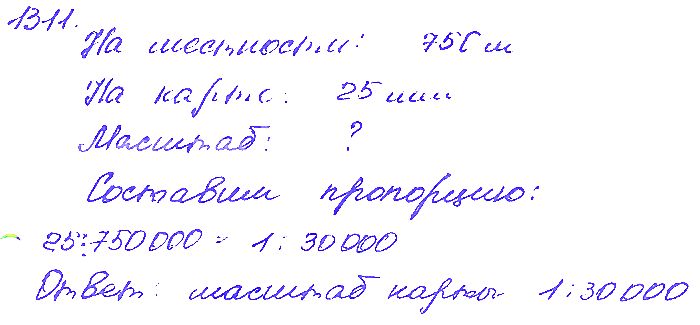 1311.
На местности: 750 м
На карте: 25 мм
Масштаб: ?
Составим пропорцию:
25:750000 = 1:30000
Ответ: масштаб карты 1:30000